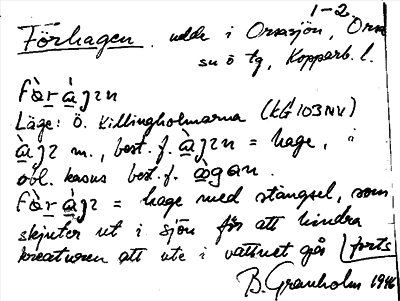 1–2.
Förhagen. udde i Orsasjön, Orsa
sn ö tg, Kopparb. l.
Läge: Ö. Killingholmarna (KG 103 NV)
m., best. f. = hage, i
obl. kasus best. f.
= hage med stängsel, som
skjuter ut i sjön för att hindra
kreaturen att ute i vattnet gå (forts
B. Granholm 1946